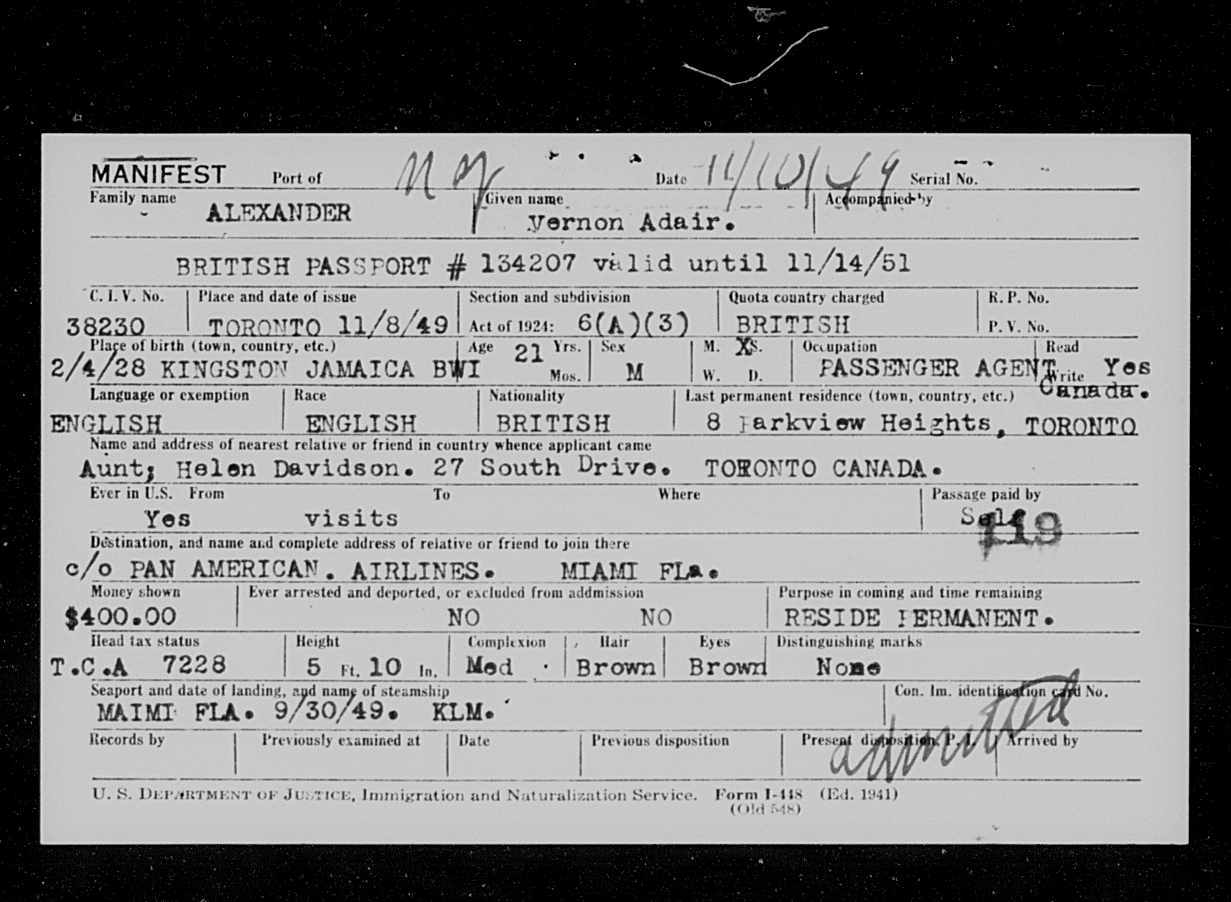 MANIFEST Port of Date 11/10/49 Serial No.
Family name ALEXANDER Given name Vernon Adair. Accompanied by
BRITISH PASSPORT # 134207 valid until 11/14/51
C. I. V. No. Place and date of issue Section and subdivision Quota country charged R. P. No.
38230 TORONTO 11/8/49 Act of 1924: 6(A)(3) BRITISH P. V. No.
Place of birth (town, country, etc.) Age 21 Yrs. Sex M. XS. Occupation Read
2/4/28 KINGSTON JAMAICA BWI Mos. M W. D. PASSENGER AGENT Write Yes
Language or exemption Race Nationality Last permanent residence (town, country, etc.) Canada.
ENGLISH ENGLISH BRITISH 8 Parkview Heights, TORONTO
Name and address of nearest relative or friend in country whence applicant came
Aunt; Helen Davidson. 27 South Drive. TORONTO CANADA.
Ever in U.S. From To Where Passage paid by
Yes visits Self
119
Destination, and name and complete address of relative or friend to join there
c/o PAN AMERICAN. AIRLINES. MIAMI FLa.
Money shown Ever arrested and deported, or excluded from addmission Purpose in coming and time remaining
$400.00 NO NO RESIDE PERMANENT.
Head tax status Height Complexion Hair Eyes Distinguishing marks
T.C.A 7228 5 Ft. 10 In. Med Brown Brown None
Seaport and date of landing, and name of steamship Con. Im. identification card No.
MAIMI FLA. 9/30/49. KLM.
admitted
Records by Previously examined at Date Previous disposition Present disposition, P. I. Arrived by
U. S. DEPARTMENT OF JUSTICE, Immigration and Naturalization Service. Form I-448 (Ed. 1941)
(Old 548)